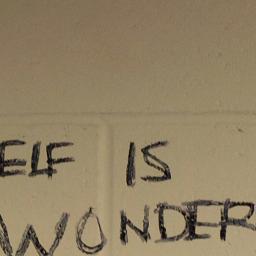 ELF IS
WONDER